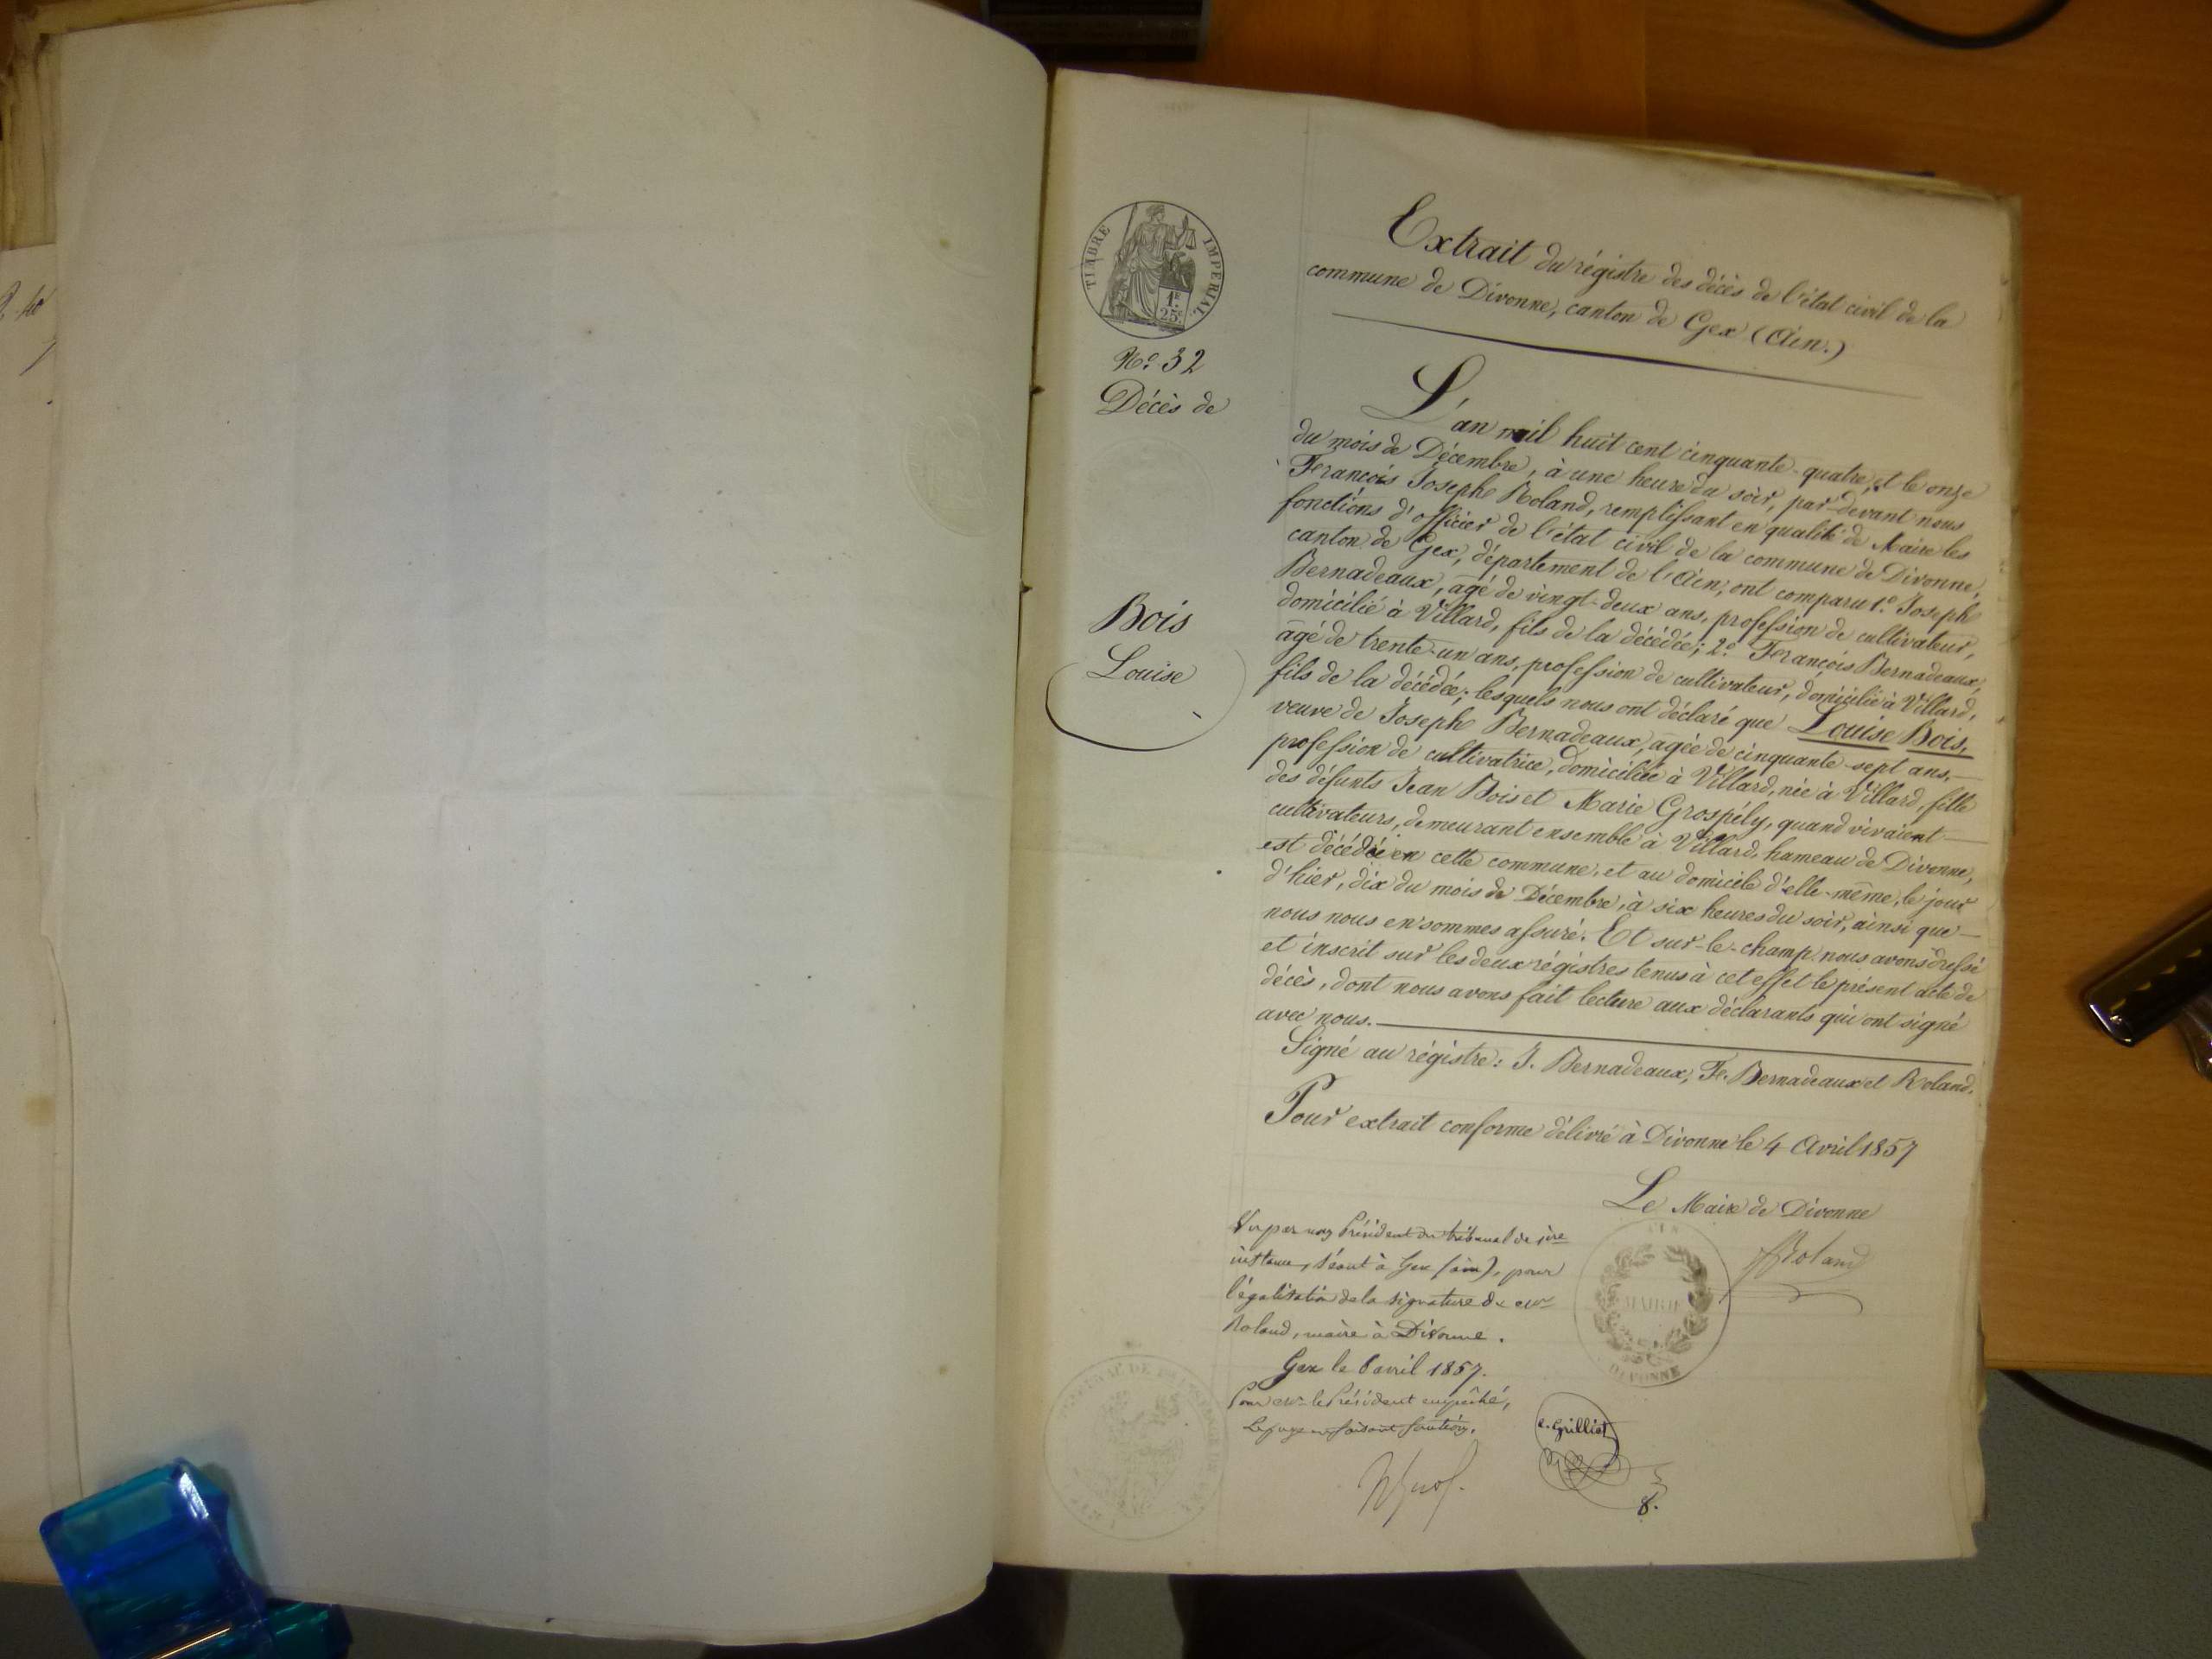 TIMBRE IMPERIAL
1F.
25c.
No. 32
Décès de
Bois
Louise
Extrait du régistre des décès de l'état civil de la
commune de Divonne, canton de Gex (Ain.)
L'an mil huit cent cinquante-quatre, et le onze
du mois de Décembre, à une heure du soir, par-devant nous
François Joseph Roland, remplissant en qualité de Maire les
fonctions d'officier de l'état civil de la commune de Divonne,
canton de Gex, département de l'Ain, ont comparu 1o. Joseph
Bernadeaux, âgé de vingt-deux ans, profession de cultivateur,
domicilié à Villard, fils de la décédée; 2o. François Bernadeaux,
âgé de trente-un ans, profession de cultivateur, domicilié à Villard,
fils de la décédée; lesquels nous ont déclaré que Louise Bois,
veuve de Joseph Bernadeaux, âgée de cinquante-sept ans,
profession de cultivatrice, domiciliée à Villard, née à Villard, fille
des défunts Jean Bois et Marie Grospély, quand vivaient
cultivateurs, demeurant ensemble à Villard, hameau de Divonne,
est décédée en cette commune, et au domicile d'elle-même, le jour
d'hier, dix du mois de Décembre, à six heures du soir, ainsi que
nous nous en sommes assuré. Et sur-le-champ nous avons dressé
et inscrit sur les deux régistres tenus à cet effet le présent acte de
décès, dont nous avons fait lecture aux déclarants qui ont signé
avec nous.
Signé au régistre: J. Bernadeaux, F. Bernadeaux et Roland.
Pour extrait conforme délivré à Divonne le 4 Avril 1857
Le Maire de Divonne
Roland
MAIRIE
DIVONNE
Vu par nous Président du tribunal de 1ère
instance, séant à Gex (ain), pour
légalisation de la signature de Mr
Roland, maire à Divonne.
Gex le 8 avril 1857.
Pour Mr le Président empêché,
Le juge en faisant fonction,
e. Grillist
8.